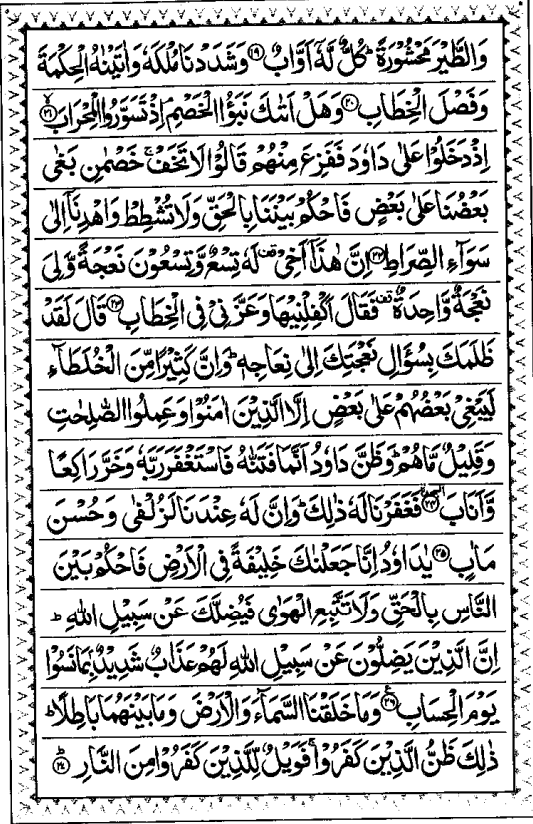 وَالطَّيْرَ مَحْشُوْرَةً ؕ كُلٌّ لَّهٗۤ اَوَّابٌ ﴿۱۹﴾ وَشَدَدْنَا مُلْكَهٗ وَاٰتَيْنٰهُ الْحِكْمَةَ
وَفَصْلَ الْخِطَابِ ﴿۲۰﴾ وَهَلْ اَتٰىكَ نَبَؤُا الْخَصْمِ ۘ اِذْ تَسَوَّرُوا الْمِحْرَابَ ﴿۲۱﴾
اِذْ دَخَلُوْا عَلٰى دَاوٗدَ فَفَزِعَ مِنْهُمْ قَالُوْا لَا تَخَفْ ۚ خَصْمٰنِ بَغٰى
بَعْضُنَا عَلٰى بَعْضٍ فَاحْكُمْ بَيْنَنَا بِالْحَقِّ وَلَا تُشْطِطْ وَاهْدِنَاۤ اِلٰى
سَوَآءِ الصِّرَاطِ ﴿۲۲﴾ اِنَّ هٰذَاۤ اَخِيْ ۫ لَهٗ تِسْعٌ وَّتِسْعُوْنَ نَعْجَةً وَّلِيَ
نَعْجَةٌ وَّاحِدَةٌ ۫ فَقَالَ اَكْفِلْنِيْهَا وَعَزَّنِيْ فِى الْخِطَابِ ﴿۲۳﴾ قَالَ لَقَدْ
ظَلَمَكَ بِسُؤَالِ نَعْجَتِكَ اِلٰى نِعَاجِهٖ ؕ وَاِنَّ كَثِيْرًا مِّنَ الْخُلَطَآءِ
لَيَبْغِيْ بَعْضُهُمْ عَلٰى بَعْضٍ اِلَّا الَّذِيْنَ اٰمَنُوْا وَعَمِلُوا الصّٰلِحٰتِ
وَقَلِيْلٌ مَّا هُمْ ؕ وَظَنَّ دَاوٗدُ اَنَّمَا فَتَنّٰهُ فَاسْتَغْفَرَ رَبَّهٗ وَخَرَّ رَاكِعًا
وَّاَنَابَ ﴿۲۴﴾ فَغَفَرْنَا لَهٗ ذٰلِكَ ؕ وَاِنَّ لَهٗ عِنْدَنَا لَزُلْفٰى وَحُسْنَ
مَاٰبٍ ﴿۲۵﴾ يٰدَاوٗدُ اِنَّا جَعَلْنٰكَ خَلِيْفَةً فِى الْاَرْضِ فَاحْكُمْ بَيْنَ
النَّاسِ بِالْحَقِّ وَلَا تَتَّبِعِ الْهَوٰى فَيُضِلَّكَ عَنْ سَبِيْلِ اللّٰهِ ؕ
اِنَّ الَّذِيْنَ يَضِلُّوْنَ عَنْ سَبِيْلِ اللّٰهِ لَهُمْ عَذَابٌ شَدِيْدٌۢ بِمَا نَسُوْا
يَوْمَ الْحِسَابِ ﴿۲۶﴾ وَمَا خَلَقْنَا السَّمَآءَ وَالْاَرْضَ وَمَا بَيْنَهُمَا بَاطِلًا ؕ
ذٰلِكَ ظَنُّ الَّذِيْنَ كَفَرُوْا ۚ فَوَيْلٌ لِّلَّذِيْنَ كَفَرُوْا مِنَ النَّارِ ﴿۲۷﴾